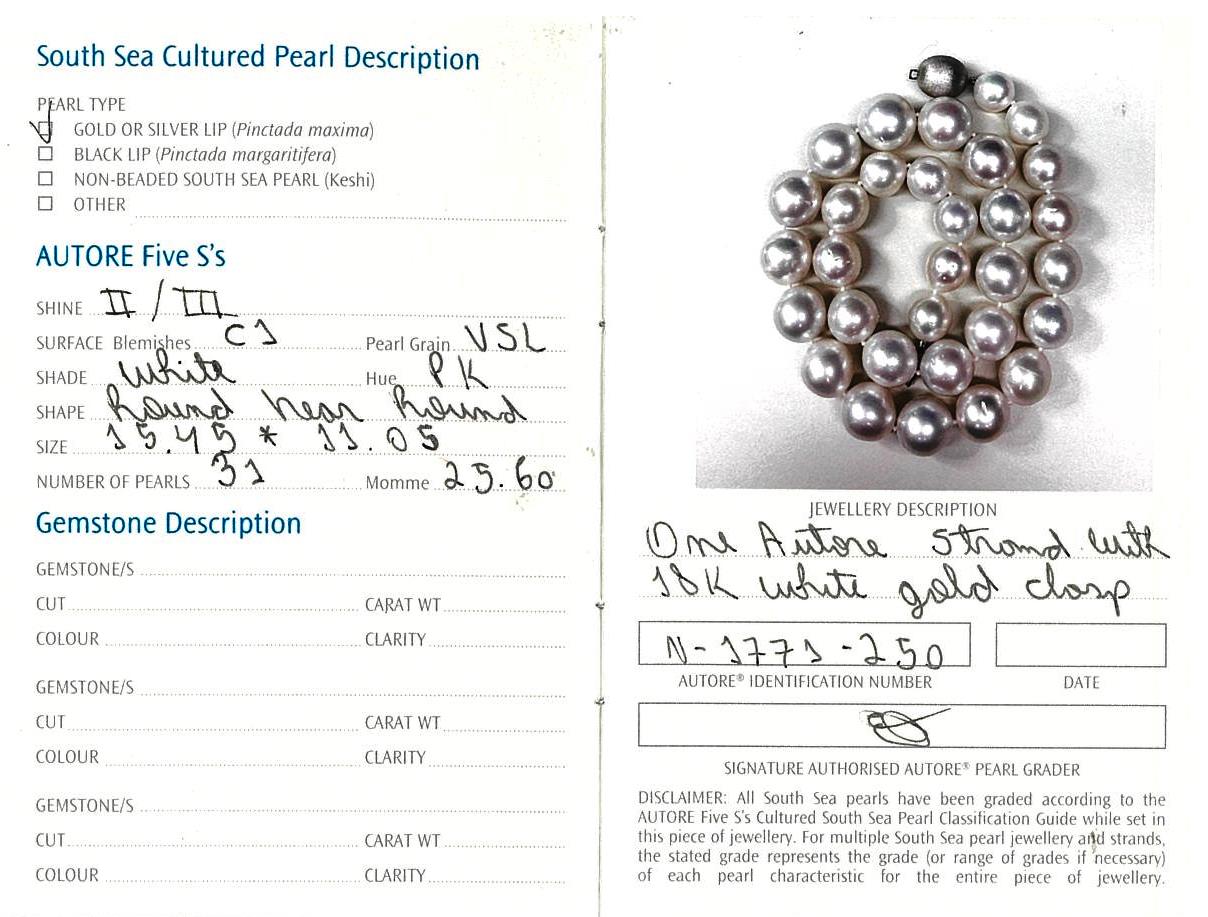 South Sea Cultured Pearl Description
PEARL TYPE
GOLD OR SILVER LIP (Pinctada maxima)
BLACK LIP (Pinctada margaritifera)
NON-BEADED SOUTH SEA PEARL (Keshi)
OTHER
AUTORE Five S's
SHINE II / III
SURFACE Blemishes C1 Pearl Grain VSL
SHADE White Hue PK
SHAPE Round Near Round
SIZE 15.45 * 11.05
NUMBER OF PEARLS 31 Momme 25.60
Gemstone Description
GEMSTONE/S
CUT CARAT WT
COLOUR CLARITY
GEMSTONE/S
CUT CARAT WT
COLOUR CLARITY
GEMSTONE/S
CUT CARAT WT
COLOUR CLARITY
JEWELLERY DESCRIPTION
One Autore Strand with
18K white gold clasp
N-1771-250
AUTORE® IDENTIFICATION NUMBER DATE
SIGNATURE AUTHORISED AUTORE® PEARL GRADER
DISCLAIMER: All South Sea pearls have been graded according to the
AUTORE Five S's Cultured South Sea Pearl Classification Guide while set in
this piece of jewellery. For multiple South Sea pearl jewellery and strands,
the stated grade represents the grade (or range of grades if necessary)
of each pearl characteristic for the entire piece of jewellery.